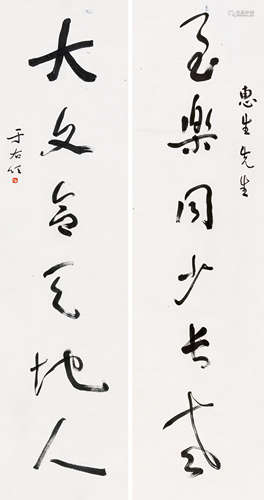 惠生先生
至樂同少長老
大文含天地人
于右任